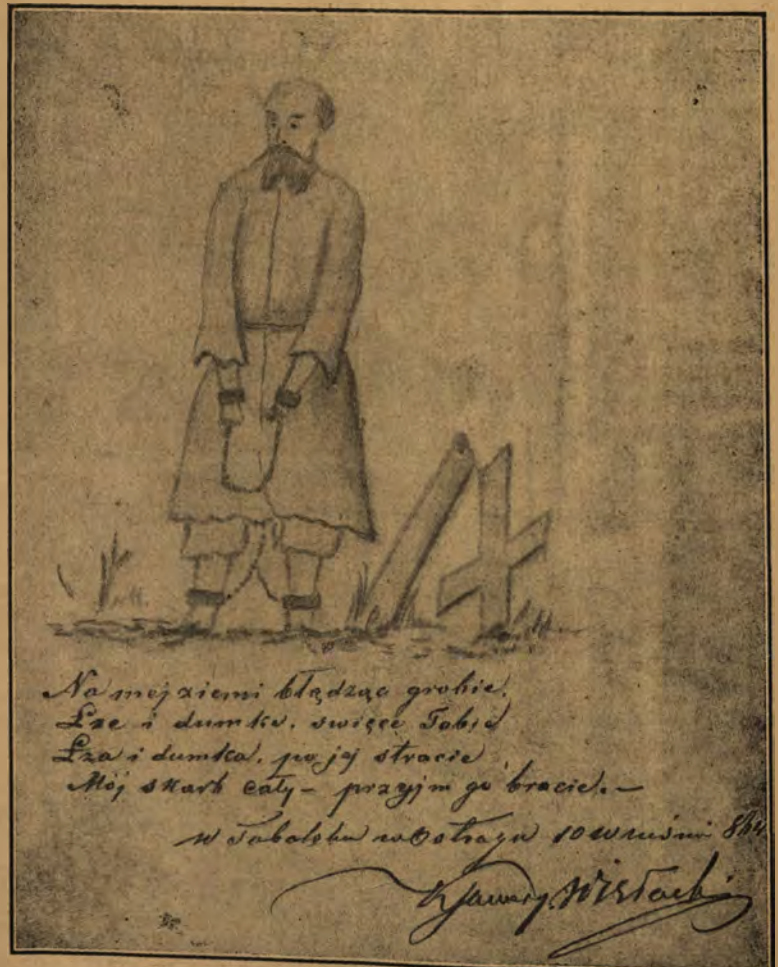 Na mej ziemi błądząc grobie,
Łzę i dumkę, święcę Tobie
Łza i dumka, po jej stracie
Mój skarb cały – przyjm go bracie. –
w Tobolsku w Ostrogu 10 wrześni 864
Ksawery